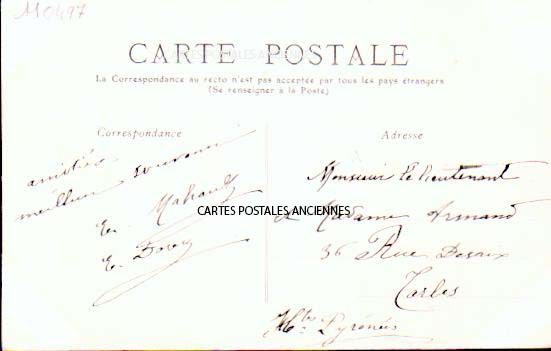 110497
CARTE POSTALE
La Correspondance au recto n'est pas acceptée par tous les pays étrangers
(Se renseigner à la Poste)
Correspondance
amitiés
meilleur souvenir
E.
E.
Adresse
Monsieur le lieutenant
& Madame Armand
36 Rue Desaix
Tarbes
Htes Pyrénées
CARTES POSTALES ANCIENNES